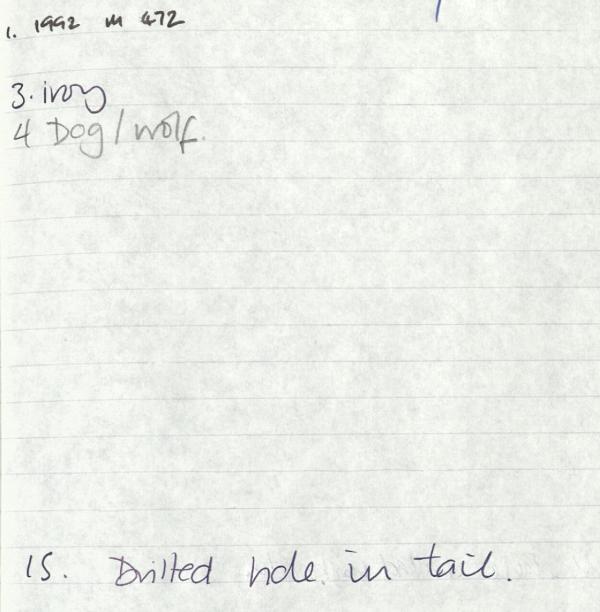 1. 1992 M 472
3. ivory
4 Dog / wolf.
15. Drilled hole in tail.